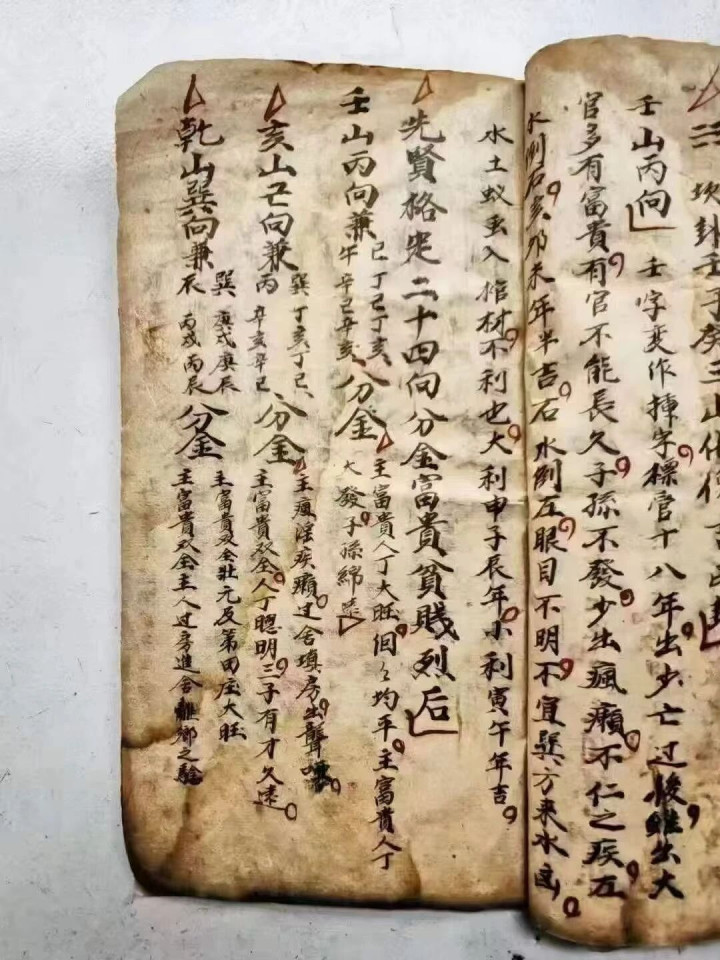 二 坎卦壬子癸三山
壬山丙向 壬字变作 字標管十八年出少亡过後雖出大
官多有富貴有官不能長久子孫不發少出瘋癲不仁之疾左
水倒右亥卯未年半吉右水倒左眼目不明不宜巽方来水凶
水土蚁虫入棺材不利也大利申子辰年小利寅午年吉
先賢格定二十四向分金富貴貧賤烈后
壬山丙向兼巳丁巳丁亥午辛巳辛亥分金主富貴人丁大旺個々均平主富貴人丁
大發子孫綿遠
亥山巳向兼巽丁亥丁巳丙辛亥辛巳分金主瘋淫疾癲过舍填房出聾
主富貴双全人丁聰明三子有才久遠
乾山巽向兼巽庚戌庚辰辰丙戌丙辰分金主富貴双全壯元及第田庄大旺
主富貴双全主人过房進舍離鄉之驗